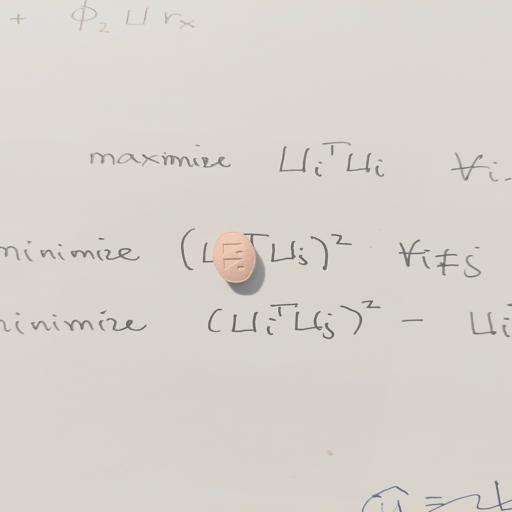 + ϕ₂ U rₓ
maximize Uᵢᵀ Uᵢ ∀i
minimize ( Uⱼ)² ∀i≠j
minimize (Uᵢᵀ Uⱼ)² − Uᵢ